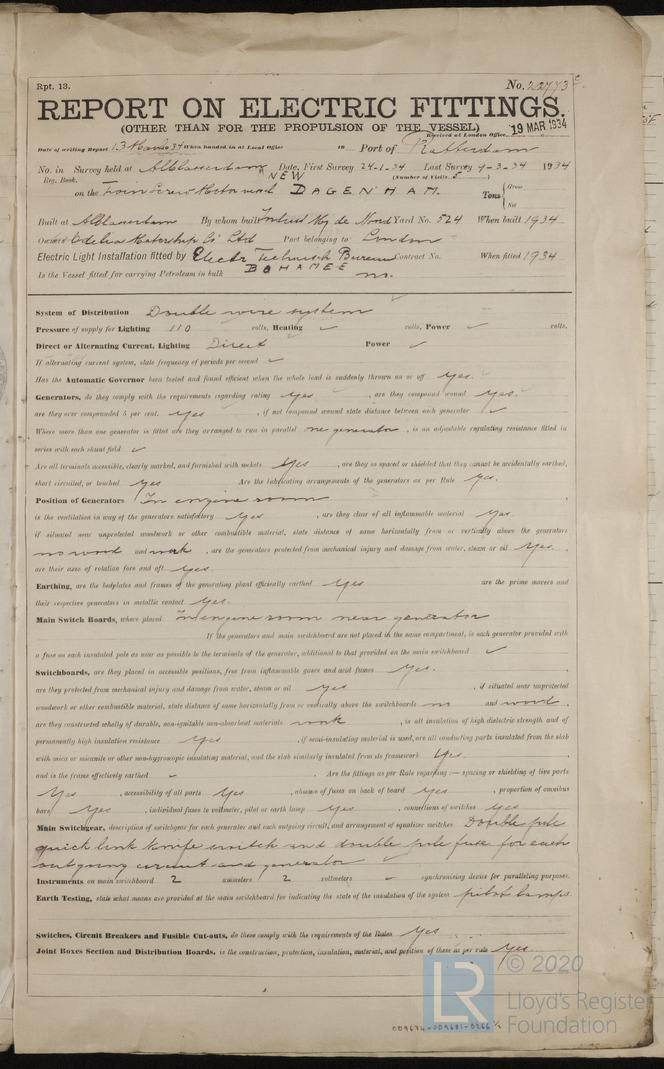 Rpt. 13.
No. 22773
REPORT ON ELECTRIC FITTINGS.
(OTHER THAN FOR THE PROPULSION OF THE VESSEL)
19 MAR 1934
Received at London Office
Date of writing Report 13 March 1934 When handed in at Local Office 19 Port of Rotterdam
No. in Survey held at Alblasserdam Date, First Survey 24-1-34 Last Survey 9-3-34 1934
Reg. Book. (Number of Visits 5)
NEW
on the Twin Screw Motor vessel DAGENHAM. Tons Gross Net
Built at Alblasserdam By whom built de Noord Yard No. 524 When built 1934
Owners Motorship Co Ltd Port belonging to London
Electric Light Installation fitted by Electr. Technisch Bureau Contract No. When fitted 1934
BOHAMEE
Is the Vessel fitted for carrying Petroleum in bulk no.
System of Distribution Double wire system
Pressure of supply for Lighting 110 volts, Heating ✓ volts, Power ✓ volts.
Direct or Alternating Current, Lighting Direct Power ✓
If alternating current system, state frequency of periods per second ✓
Has the Automatic Governor been tested and found efficient when the whole load is suddenly thrown on or off yes.
Generators, do they comply with the requirements regarding rating yes, are they compound wound yes.
are they over compounded 5 per cent. yes, if not compound wound state distance between each generator ✓
Where more than one generator is fitted are they arranged to run in parallel one generator, is an adjustable regulating resistance fitted in
series with each shunt field ✓
Are all terminals accessible, clearly marked, and furnished with sockets yes, are they so spaced or shielded that they cannot be accidentally earthed,
short circuited, or touched yes. Are the lubricating arrangements of the generators as per Rule yes.
Position of Generators In engine room
is the ventilation in way of the generators satisfactory yes, are they clear of all inflammable material yes.
if situated near unprotected woodwork or other combustible material, state distance of same horizontally from or vertically above the generators
no wood and, are the generators protected from mechanical injury and damage from water, steam or oil yes.
are their axes of rotation fore and aft yes.
Earthing, are the bedplates and frames of the generating plant efficiently earthed yes are the prime movers and
their respective generators in metallic contact yes.
Main Switch Boards, where placed In engine room near generator
If the generators and main switchboard are not placed in the same compartment, is each generator provided with
a fuse on each insulated pole as near as possible to the terminals of the generator, additional to that provided on the main switchboard ✓
Switchboards, are they placed in accessible positions, free from inflammable gases and acid fumes yes.
are they protected from mechanical injury and damage from water, steam or oil yes, if situated near unprotected
woodwork or other combustible material, state distance of same horizontally from or vertically above the switchboards no and wood,
are they constructed wholly of durable, non-ignitable non-absorbent materials, is all insulation of high dielectric strength and of
permanently high insulation resistance yes, if semi-insulating material is used, are all conducting parts insulated from the slab
with mica or micanite or other non-hygroscopic insulating material, and the slab similarly insulated from its framework yes.
and is the frame effectively earthed ✓. Are the fittings as per Rule regarding:— spacing or shielding of live parts
yes, accessibility of all parts yes, absence of fuses on back of board yes, proportion of omnibus
bars yes, individual fuses to voltmeter, pilot or earth lamp yes, connections of switches yes
Main Switchgear, description of switchgear for each generator and each outgoing circuit, and arrangement of equalizer switches Double pole
quick link knife switch and double pole fuse for each
outgoing circuit and generator
Instruments on main switchboard 2 ammeters 2 voltmeters ✓ synchronising device for paralleling purposes.
Earth Testing, state what means are provided at the main switchboard for indicating the state of the insulation of the system pilot lamps.
Switches, Circuit Breakers and Fusible Cut-outs, do these comply with the requirements of the Rules yes.
Joint Boxes Section and Distribution Boards, is the construction, protection, insulation, material, and position of these as per rule yes.
LR
© 2020
Lloyd's Register
Foundation
009674-009681-0266 ¼